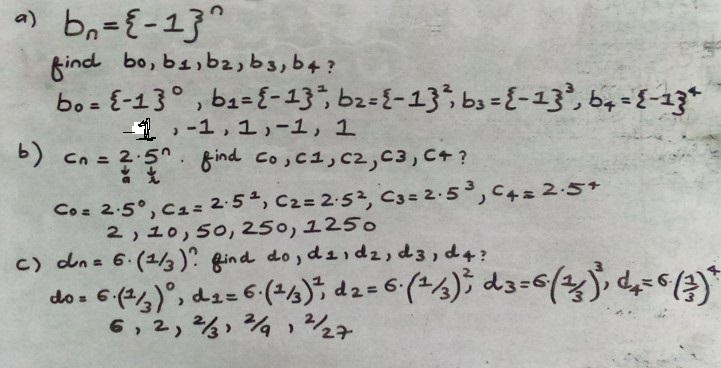 a) bn={-1}ⁿ
find b0, b1, b2, b3, b4?
b0 = {-1}⁰, b1={-1}¹, b2={-1}², b3={-1}³, b4={-1}⁴
1, -1, 1, -1, 1
b) Cn = 2·5ⁿ. find C0, C1, C2, C3, C4?
↓ ↓
a r
C0= 2·5⁰, C1= 2·5¹, C2= 2·5², C3= 2·5³, C4= 2·5⁴
2, 10, 50, 250, 1250
c) dn= 6·(1/3)ⁿ? find d0, d1, d2, d3, d4?
d0= 6·(1/3)⁰, d1= 6·(1/3)¹, d2= 6·(1/3)², d3=6·(1/3)³, d4=6·(1/3)⁴
6, 2, 2/3, 2/9, 2/27